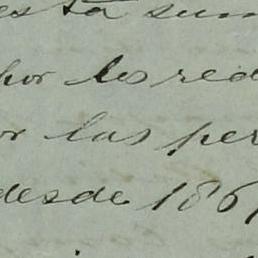 está sum
por los red
or las per
desde 186